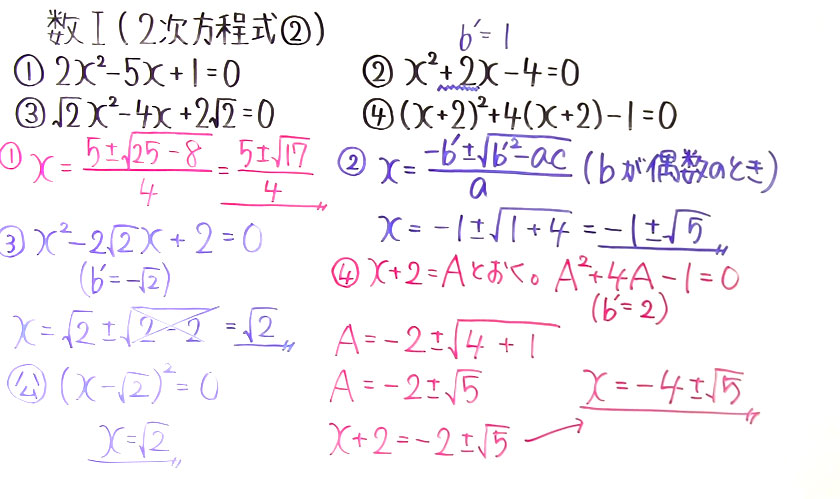 数Ⅰ(2次方程式②)
b′=1
① 2x²-5x+1=0
② x²+2x-4=0
③ √2x²-4x+2√2=0
④ (x+2)²+4(x+2)-1=0
① x=(5±√(25-8))/4=(5±√17)/4
② x=(-b′±√(b′²-ac))/a (bが偶数のとき)
x=-1±√(1+4)=-1±√5
③ x²-2√2x+2=0
(b′=-√2)
x=√2±√(2-2)=√2
公 (x-√2)²=0
x=√2
④ x+2=Aとおく。A²+4A-1=0
(b′=2)
A=-2±√(4+1)
A=-2±√5
x+2=-2±√5 →
x=-4±√5